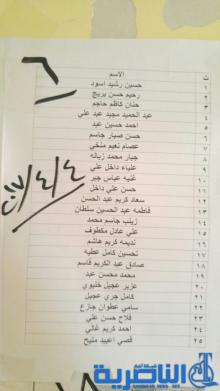 ٦
ت الاسم
١ حسين رشيد اسود
٢ رحيم حسن بريج
٣ حنان كاظم حاجم
٤ عبد الحميد مجيد عبد علي
٥ احمد حسين عبد
٦ حسن صبار جاسم
٧ عصام نعيم منخي
٨ جبار محمد زباله
٩ علياء داخل علي
١٠ غنيه عباس جبر
١١ حسن علي داخل
١٢ سعاد كريم عبد الحسن
١٣ فاطمه عبد الحسين سلطان
١٤ زينب جاسم محمد
١٥ علي عادل مكطوف
١٦ نديمه كريم هاشم
١٧ تحسين كامل عطيه
١٨ صادق عبد الكريم قاسم
١٩ محمد محسن عبد
٢٠ عزيز عجيل خنيوي
٢١ كامل جري عجيل
٢٢ سامي عطوان جازع
٢٣ فلاح حسن علي
٢٤ احمد كريم غالي
٢٥ قصي اعبيد منيح
الناصرية